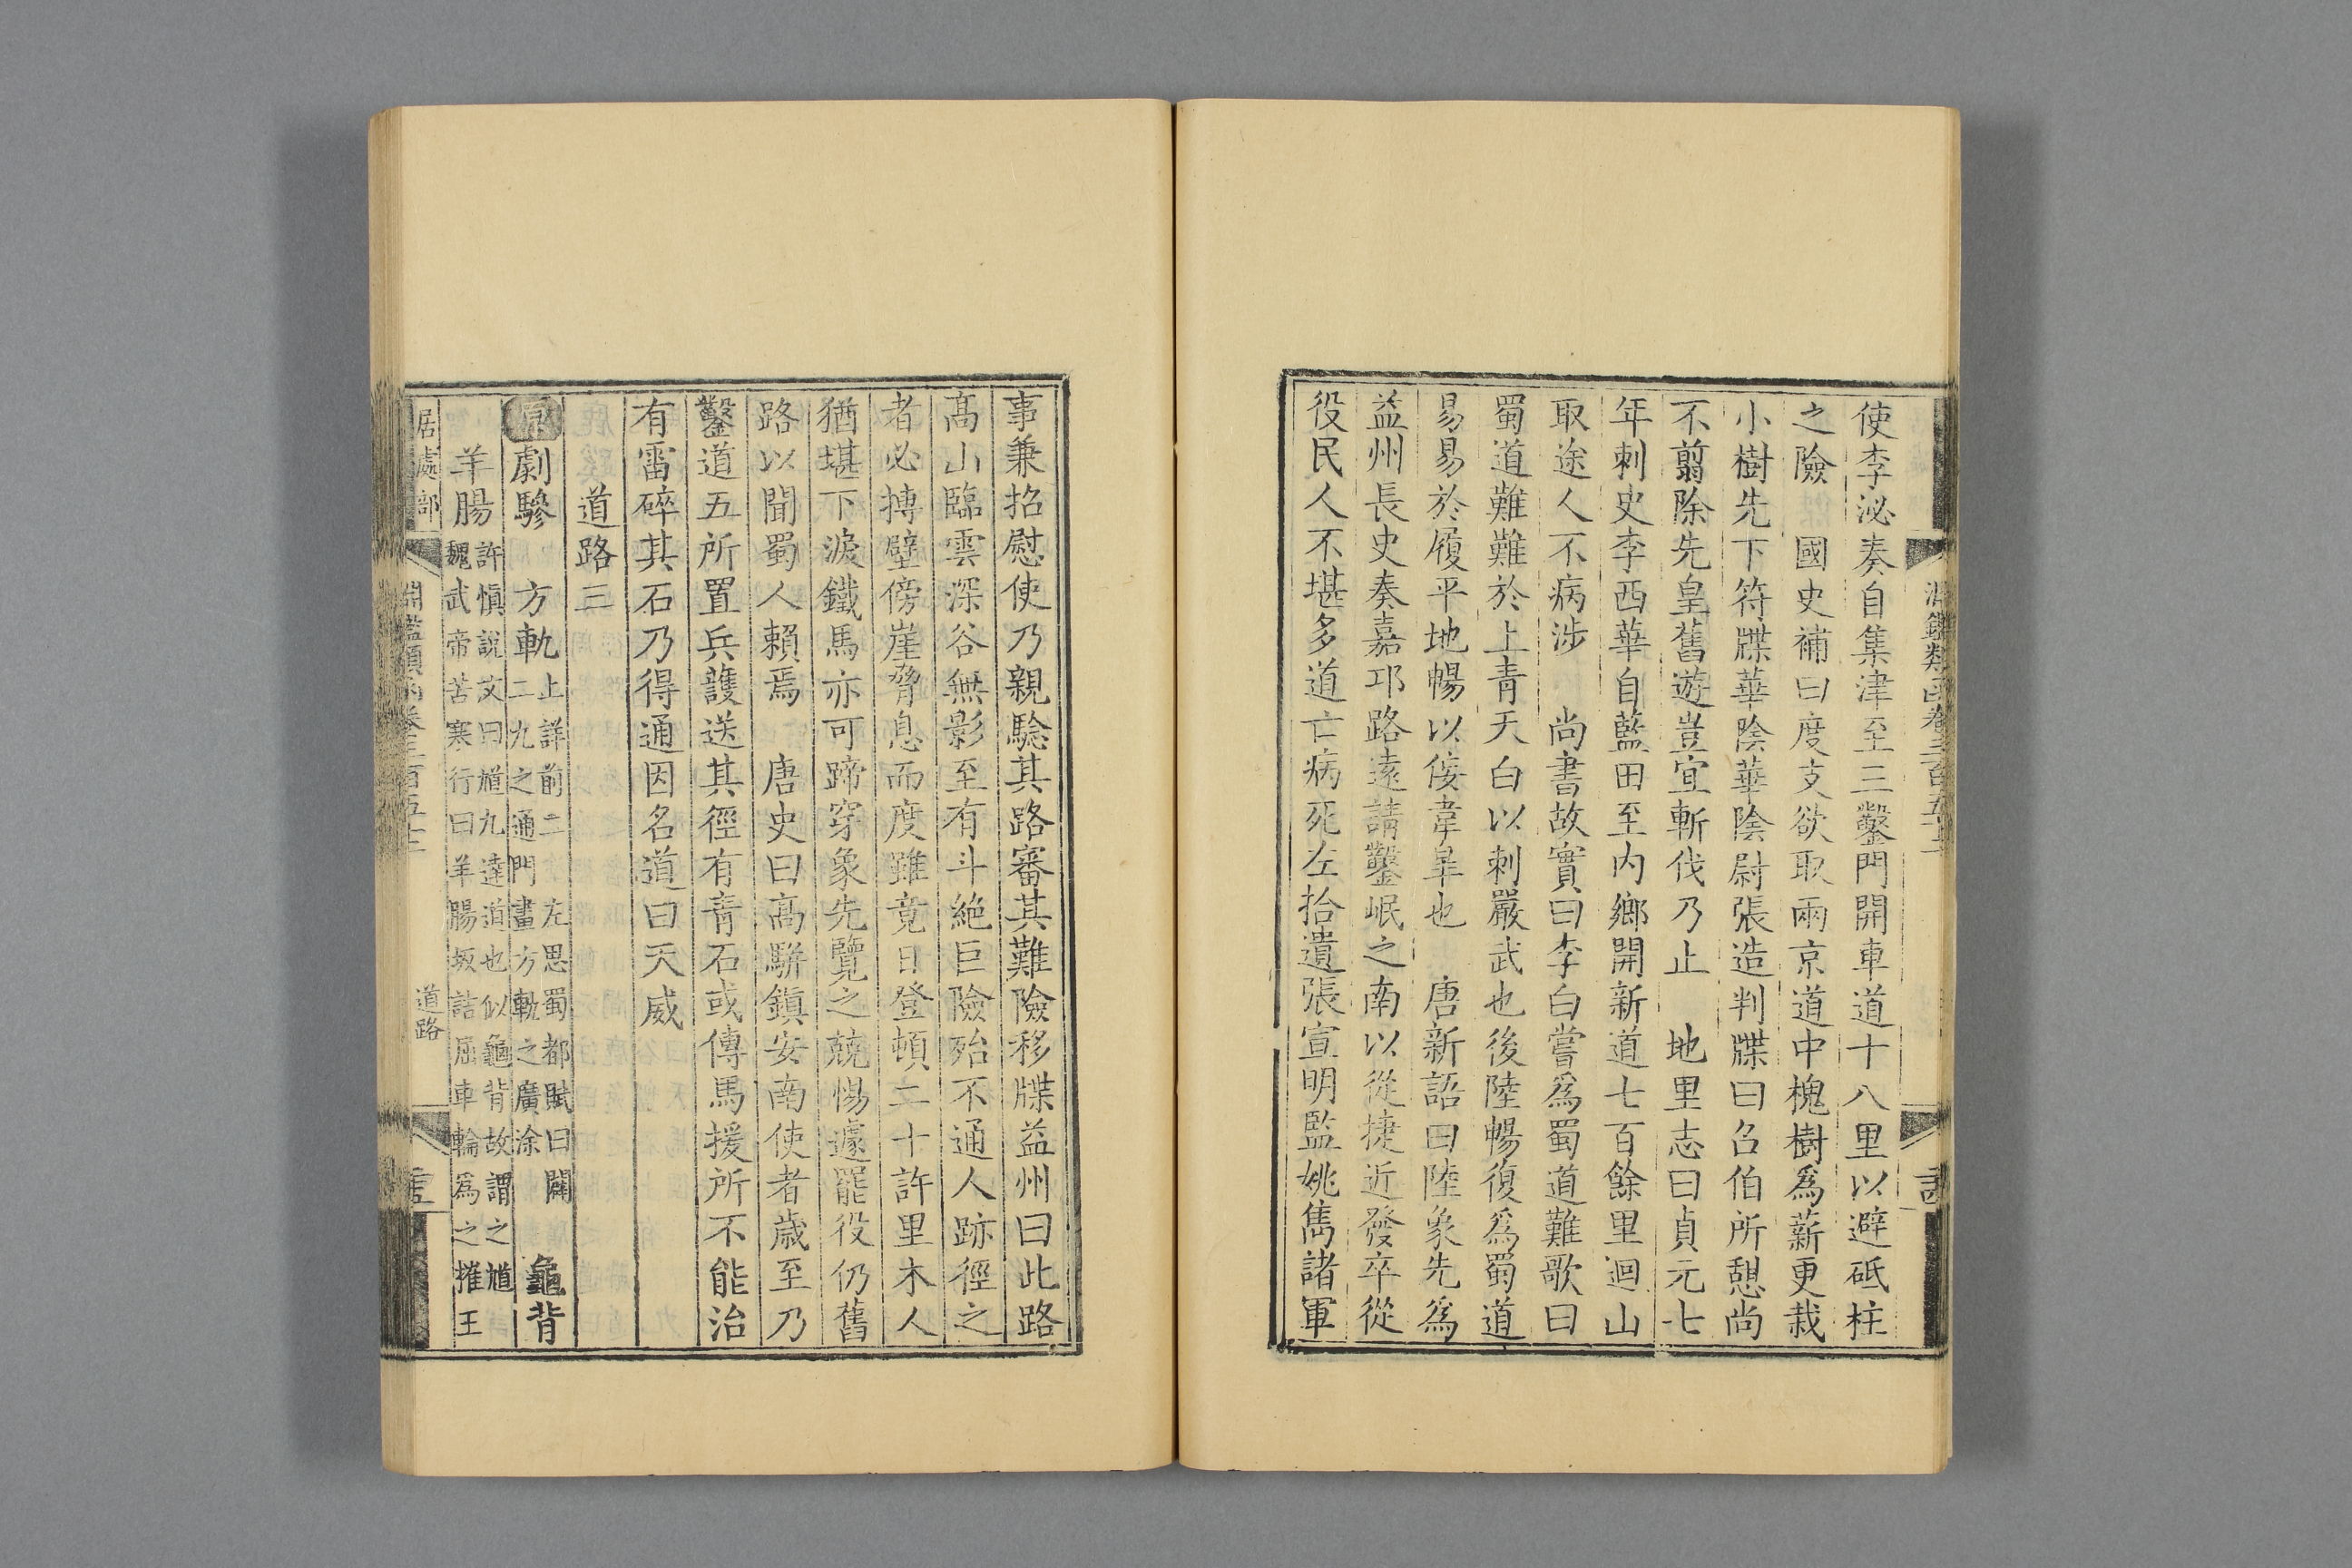 使李泌奏自集津至三鑿門開車道十八里以避砥柱
之險　國史補曰度支欲取兩京道中槐樹爲薪更栽
小樹先下符牒華陰華陰尉張造判牒曰召伯所憩尚
不翦除先皇舊遊豈宜斬伐乃止　地里志曰貞元七
年刺史李西華自藍田至內鄉開新道七百餘里迴山
取途人不病涉　尚書故實曰李白嘗爲蜀道難歌曰
蜀道難難於上青天白以刺嚴武也後陸暢復爲蜀道
易易於履平地暢以佞韋臯也　唐新語曰陸象先爲
益州長史奏嘉邛路遠請鑿岷之南以從捷近發卒從
役民人不堪多道亡病死左拾遺張宣明監姚雋諸軍
事兼招慰使乃親驗其路審其難險移牒益州曰此路
高山臨雲深谷無影至有斗絶巨險殆不通人跡徑之
者必摶壁傍崖脅息而度雖竟日登頓二十許里木人
猶堪下淚鐵馬亦可蹄穿象先覽之兢惕遽罷役仍舊
路以聞蜀人賴焉　唐史曰高駢鎮安南使者歲至乃
鑿道五所置兵護送其徑有青石或傳馬援所不能治
有雷碎其石乃得通因名道曰天威
道路三
原劇驂　方軌上詳前二　左思蜀都賦曰闢二九之通門畫方軌之廣涂　龜背
羊腸許慎説文曰馗九達道也似龜背故謂之馗魏武帝苦寒行曰羊腸坂詰屈車輪爲之摧王
居處部
淵鑑類函卷三百五十
道路